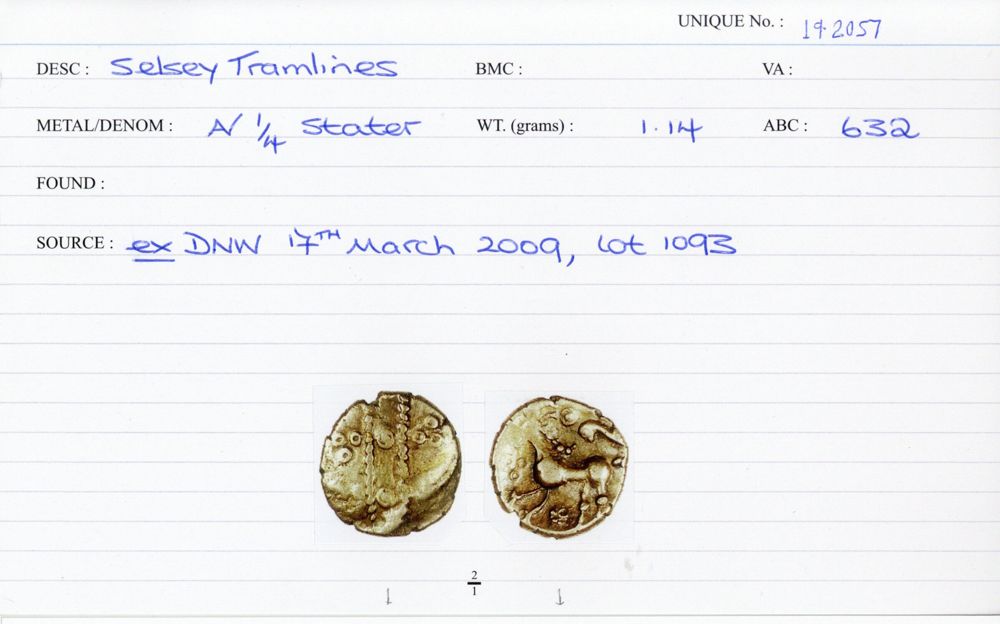 UNIQUE No. : 19.2057
DESC : Selsey Tramlines BMC : VA :
METAL/DENOM : AV 1/4 Stater WT. (grams) : 1.14 ABC : 632
FOUND :
SOURCE : ex DNW 17TH March 2009, lot 1093
2/1